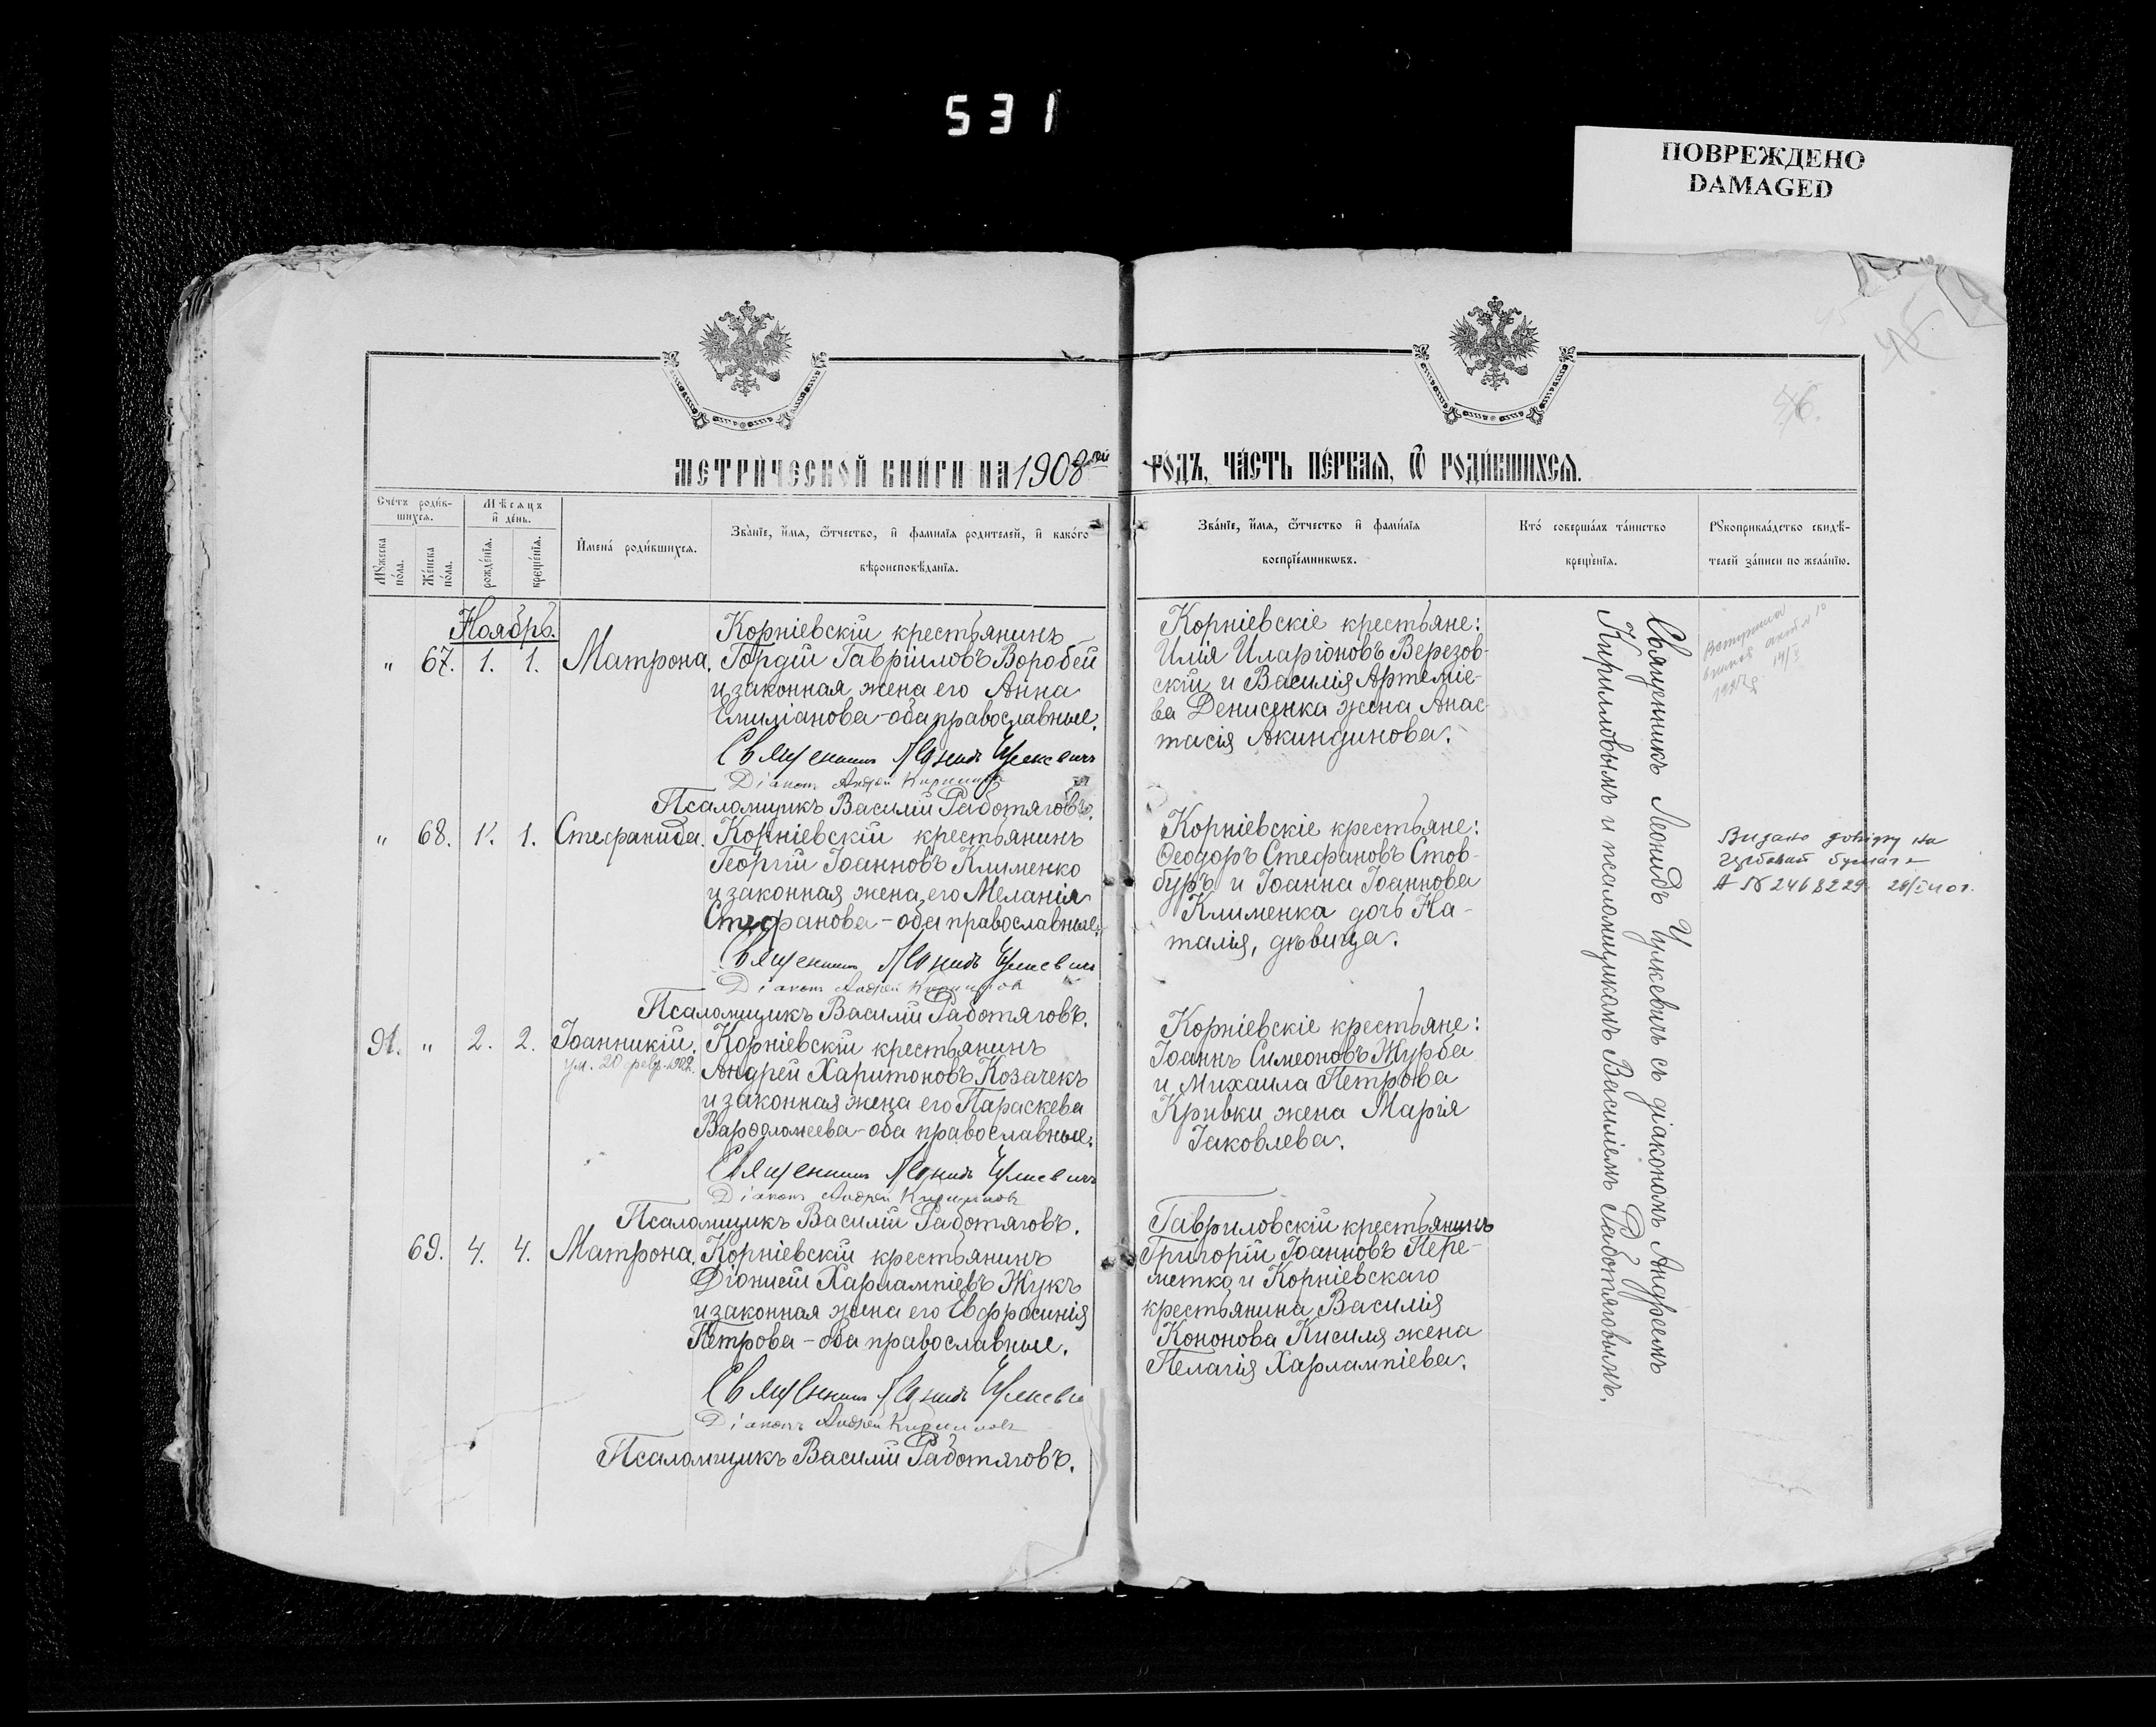 531
ПОВРЕЖДЕНО
DAMAGED
МЕТРИ́ЧЕСКОЙ КНИ́ГИ НА 1908 ГОДЪ, ЧА́СТЬ ПЕ́РВАЯ, Ѿ РОДИ́ВШИХСЯ.
Сче́тъ роди́в-
шихся.
Мѣ́сяцъ
и҆ де́нь.
Мꙋ́жеска
по́ла.
Же́нска
по́ла.
рожде́нїя.
креще́нїя.
И҆мена̀ роди́вшихся.
Зва́нїе, и҆́мя, ѻ҆́тчество, и҆ фамилїя родителей, и҆ како́го
вѣроисповѣ́данїя.
Зва́нїе, и҆́мя, ѻ҆́тчество и҆ фами́лїя
воспрїе́мникѡвъ.
Кто́ соверша́лъ та́инство
креще́нїя.
Рꙋкоприкла́дство свидѣ́-
телей за́писи по жела́нїю.
Ноябрь.
" 67. 1. 1. Матрона.
Корніевскій крестьянинъ
Гордій Гавріиловъ Воробей
и законная жена его Анна
Емиліанова - оба православные.
Священникъ Леонидъ Чулкевичъ
Діаконъ Андрей Кирилловъ
Псаломщикъ Василій Работяговъ.
Корніевскіе крестьяне:
Илія Иларіоновъ Верезов-
скій и Василія Артеміе-
ва Денисенка жена Анас-
тасія Акиндинова.
" 68. 1. 1. Стефанида.
Корніевскій крестьянинъ
Георгій Іоанновъ Клименко
и законная жена его Меланія
Стефанова - оба православные.
Священникъ Леонидъ Чулкевичъ
Діаконъ Андрей Кирилловъ
Псаломщикъ Василій Работяговъ.
Корніевскіе крестьяне:
Ѳеодоръ Стефановъ Стов-
буръ и Іоанна Іоаннова
Клименка дочь На-
талія, дѣвица.
Видано довідку на
гербовой бумаге
А № 2468229
91. " 2. 2. Іоанникій.
ум. 20 февр.
Корніевскій крестьянинъ
Андрей Харитоновъ Козачекъ
и законная жена его Параскева
Варѳоломеева - оба православные.
Священникъ Леонидъ Чулкевичъ
Діаконъ Андрей Кирилловъ
Псаломщикъ Василій Работяговъ.
Корніевскіе крестьяне:
Іоаннъ Симеоновъ Журба
и Михаила Петрова
Кривки жена Марія
Іаковлева.
69. 4. 4. Матрона.
Корніевскій крестьянинъ
Діонисій Харлампіевъ Жукъ
и законная жена его Евфросинія
Петрова - оба православные.
Священникъ Леонидъ Чулкевичъ
Діаконъ Андрей Кирилловъ
Псаломщикъ Василій Работяговъ.
Гавриловскій крестьянинъ
Григорій Іоанновъ Пере-
метко и Корніевскаго
крестьянина Василія
Кононова Кисиля жена
Пелагія Харлампіева.
Священникъ Леонидъ Чулкевичъ съ діакономъ Андреемъ
Кирилловымъ и псаломщикомъ Василіемъ Работяговымъ.